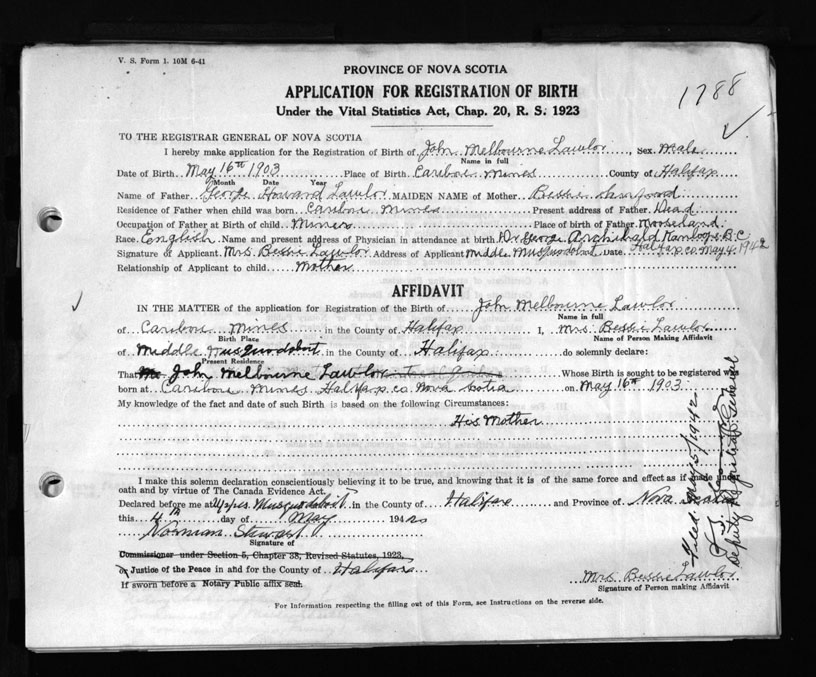 V. S. Form 1. 10M 6-41
PROVINCE OF NOVA SCOTIA
APPLICATION FOR REGISTRATION OF BIRTH
1788
Under the Vital Statistics Act, Chap. 20, R. S. 1923
TO THE REGISTRAR GENERAL OF NOVA SCOTIA
I hereby make application for the Registration of Birth of John Melbourne Lawlor, Sex Male
Name in full
Date of Birth May 16th 1903 Place of Birth Caribou Mines County of Halifax
Month Date Year
Name of Father George Howard Lawlor MAIDEN NAME of Mother Bessie
Residence of Father when child was born Caribou Mines Present address of Father Dead
Occupation of Father at Birth of child Miner Place of birth of Father Mooseland
Race English Name and present address of Physician in attendance at birth Dr George Archibald Kamloops B.C.
Signature of Applicant Mrs Bessie Lawlor Address of Applicant Middle Musquodoboit Halifax co. Date May 4 1942
Relationship of Applicant to child Mother
AFFIDAVIT
IN THE MATTER of the application for Registration of the Birth of John Melbourne Lawlor
Name in full
of Caribou Mines in the County of Halifax I, Mrs Bessie Lawlor
Birth Place Name of Person Making Affidavit
of Middle Musquodoboit in the County of Halifax do solemnly declare:
Present Residence
That John Melbourne Lawlor Whose Birth is sought to be registered was
born at Caribou Mines Halifax co Nova Scotia on May 16th 1903.
My knowledge of the fact and date of such Birth is based on the following Circumstances:
His Mother
I make this solemn declaration conscientiously believing it to be true, and knowing that it is of the same force and effect as if made under
oath and by virtue of The Canada Evidence Act.
Declared before me at Upper Musquodoboit in the County of Halifax and Province of Nova Scotia
this 4th day of May 1942
Norman Stewart
Signature of
Commissioner under Section 5, Chapter 38, Revised Statutes, 1923,
or Justice of the Peace in and for the County of Halifax
If sworn before a Notary Public affix seal.
Mrs Bessie Lawlor
Signature of Person making Affidavit
For Information respecting the filling out of this Form, see Instructions on the reverse side.
Filed. May 5/1942
Deputy Registrar General